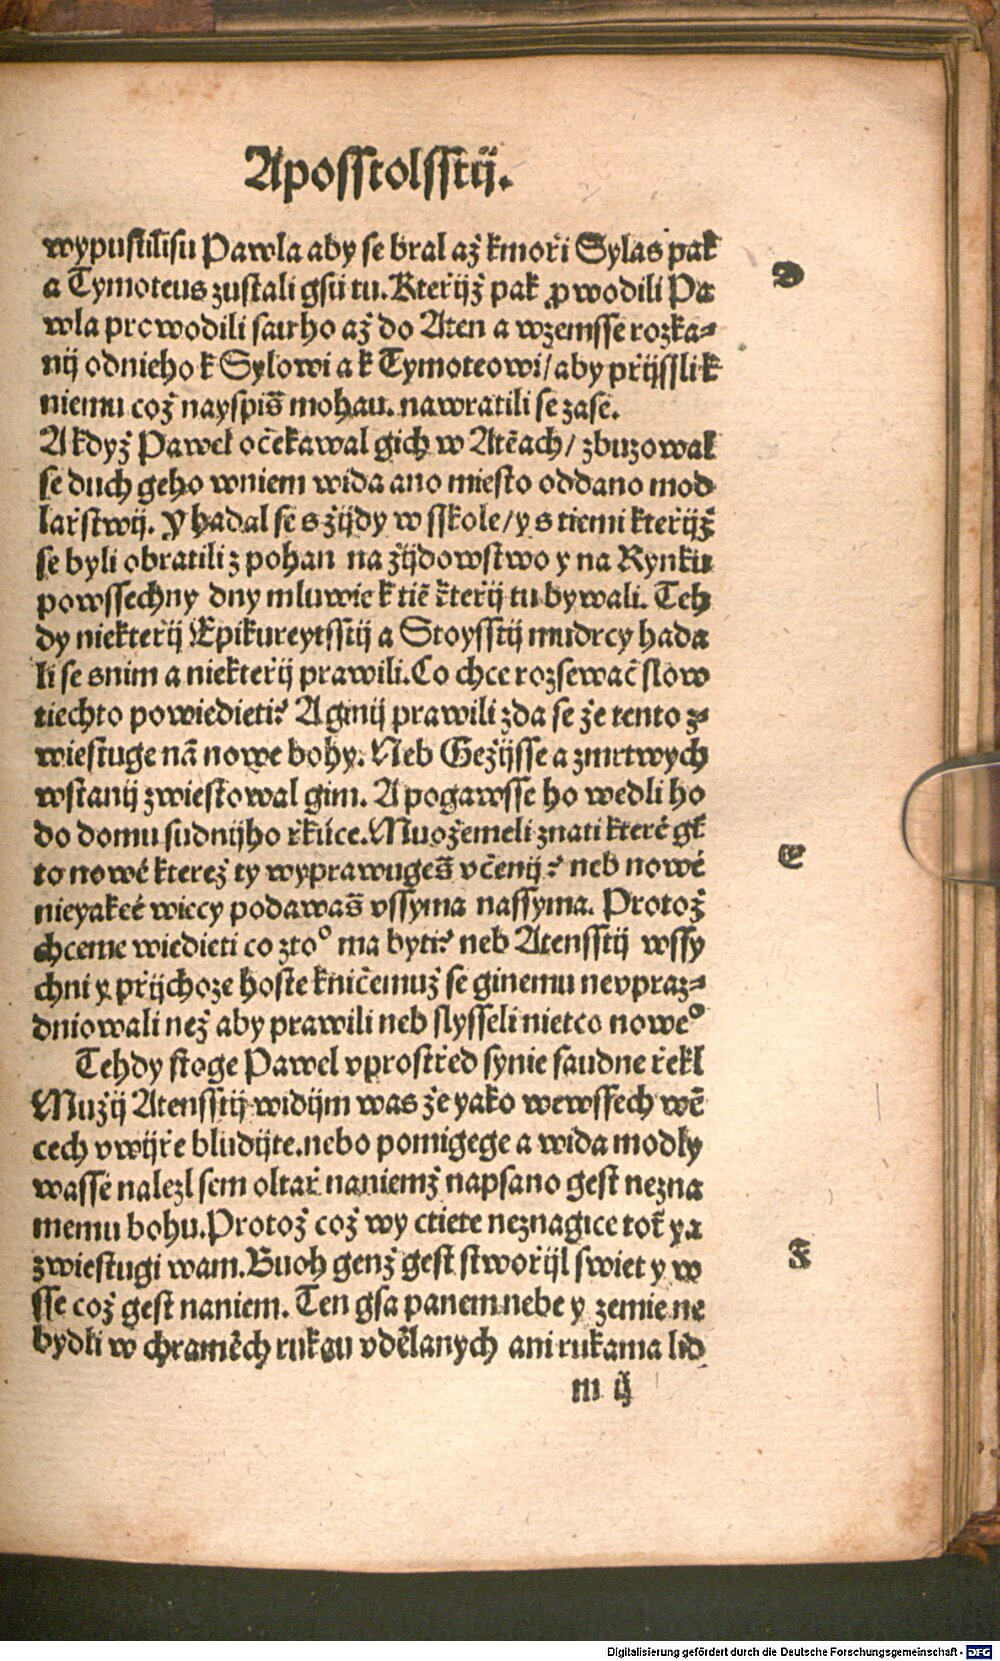 Aposstolsstij.
wypustilisu Pawla aby se bral až kmoři Sylas pak
D
a Tymoteus zustali gsú tu. Kteřijž pak ꝓwodili Pa
wla prowodili sau ho až do Aten a wzemsse rozka⸗
nij odnieho k Sylowi a k Tymoteowi/ aby přijssli k
niemu což nayspiš mohau. nawratili se zase.
A když Pawel očekawal gich w Atēach/ zbuzowal
se duch geho wniem wida ano miesto oddano mod
lařstwij. Y hadal se s žijdy w sskole/ y s tiemi kteřijž
se byli obratili z pohan na žijdowstwo y na Rynku
powssechny dny mluwie k tiē kteřij tu bywali. Teh
dy niekteřij Epikureytsstij a Stoysstij mudrcy hada
li se snim a niekteřij prawili. Co chce rozsewač slow
tiechto powiedieti? A ginij prawili zda se že tento z⸗
wiestuge nā nowe bohy. Neb Gežijsse a zmrtwych
wstanij zwiestowal gim. A pogawsse ho wedli ho
do domu sudnijho řkúce. Muožemeli znati které gt
to nowé kterež ty wyprawugeš včenij? neb nowé
E
nieyakeé wieccy podawaš vssyma nassyma. Protož
chceme wiedieti co zto° ma byti? neb Atensstij wssy
chni y přijchoze hoste kničemuž se ginemu nevpraz⸗
dniowali než aby prawili neb slysseli nietco nowe°
Tehdy stoge Pawel vprostřed synie saudne řekl
Mužij Atensstij widijm was že yako wewssech wē
cech v wijře bludijte. nebo pomigege a wida modly
wasse nalezl sem oltař naniemž napsano gest nezna
memu bohu. Protož což wy ctiete neznagice toť ya
zwiestugi wam. Buoh genž gest stwořijl swiet y w
F
sse což gest naniem. Ten gsa panem nebe y zemie ne
bydli w chramēch rukau vdělanych ani rukama lid
m ij
Digitalisierung gefördert durch die Deutsche Forschungsgemeinschaft - DFG